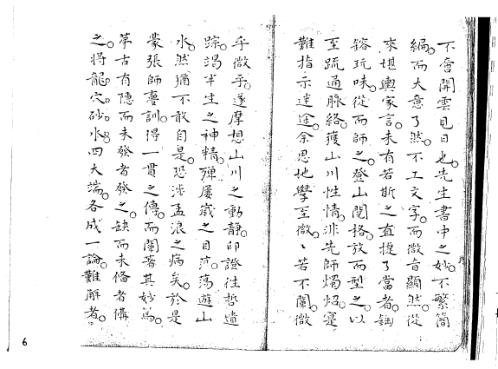 不啻開雲見日也。先生書中之妙。不繁簡
編。而大意了然。不工文字。而微旨顯然。從
來堪輿家言。未有若斯之直捷了當者。細
玩味。從而師之。登山閱格。放而型之。以
至疏通脉絡。獲山川性情。非先師燭炤
難指示迷途。余思地學至微。若不闡微
乎微乎。遂厚想山川之動靜。印證往哲遺
踪。竭半生之神精。殫屢歲之目。蕩遊山
水。然猶不敢自是。恐涉孟浪之病矣。於是
蒙張師蔓訓。得一貫之傳。而闡蓍其妙焉。
第古有隱而未發者發之。缺而未備者備
之。將龍。穴。砂。水。四大端。各成一論。難解者。
6